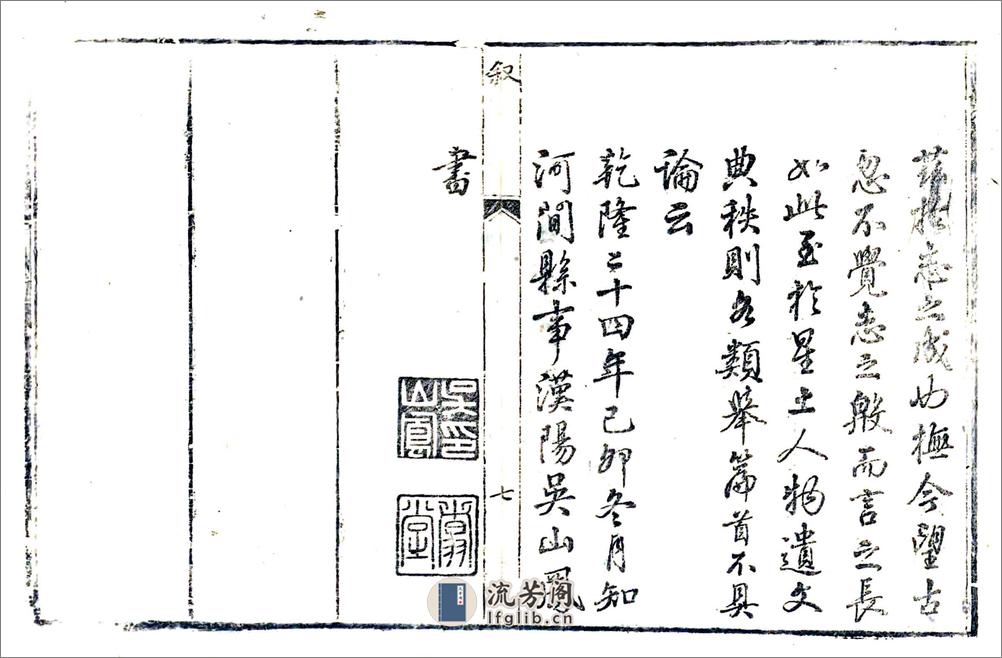 茲於志之成也撫今望古
忽不覺志之殷而言之長
如此至於星土人物遺文
典秩則各類舉篇首不具
論云
乾隆二十四年己卯冬月知
河間縣事漢陽吳山鳳
書
叙
七
吳山鳳印
流芳阁
lfglib.cn